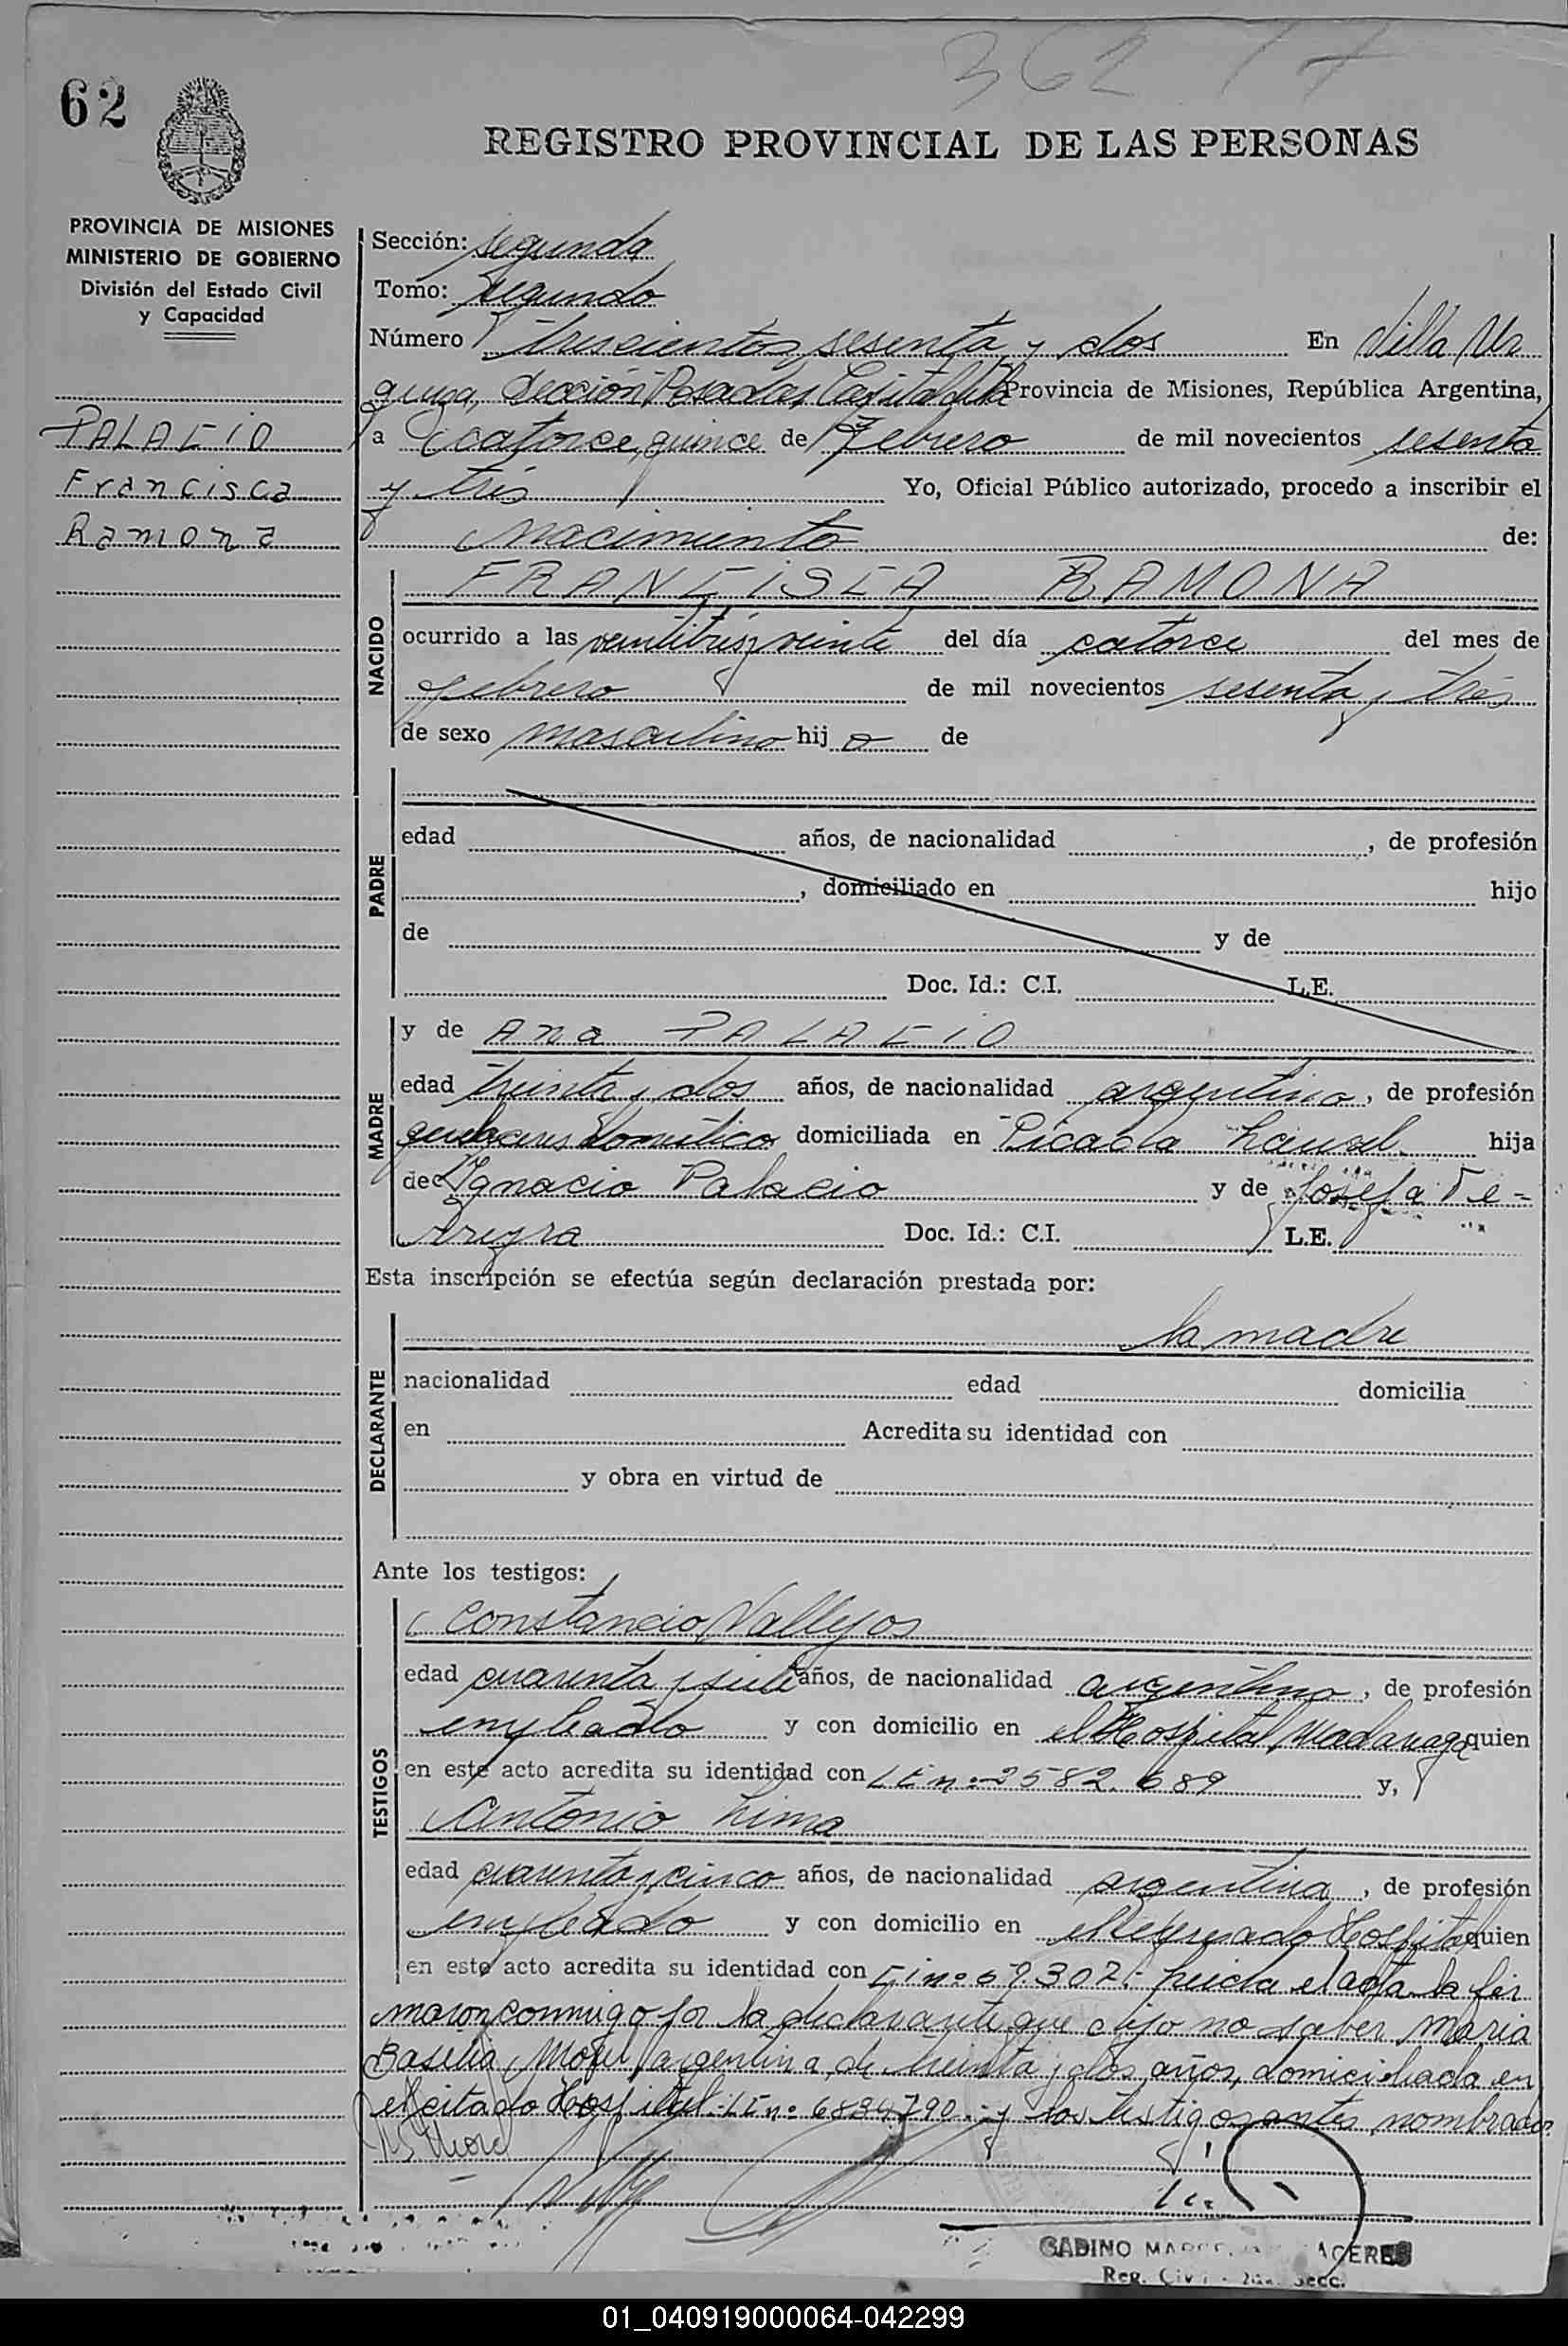 362
62
REGISTRO PROVINCIAL DE LAS PERSONAS
PROVINCIA DE MISIONES
MINISTERIO DE GOBIERNO
División del Estado Civil
y Capacidad
PALACIO
Francisca
Ramona
Sección: segunda
Tomo: segundo
Número trescientos sesenta y dos En Villa Ur
quiza, Sección Posadas, Capital de la Provincia de Misiones, República Argentina,
a catorce, quince de Febrero de mil novecientos sesenta
y tres Yo, Oficial Público autorizado, procedo a inscribir el
nacimiento de:
NACIDO
FRANCISCA RAMONA
ocurrido a las veintitres y veinte del día catorce del mes de
febrero de mil novecientos sesenta y tres
de sexo masculino hij o de
PADRE
edad años, de nacionalidad , de profesión
, domiciliado en hijo
de y de
Doc. Id.: C.I. L.E.
MADRE
y de Ana PALACIO
edad treinta y dos años, de nacionalidad argentina, de profesión
domiciliada en Picada hija
de Ignacio Palacio y de Josefa Fe-
rreyra Doc. Id.: C.I. L.E.
Esta inscripción se efectúa según declaración prestada por:
DECLARANTE
la madre
nacionalidad edad domicilia
en Acredita su identidad con
y obra en virtud de
Ante los testigos:
TESTIGOS
Constancio Vallejos
edad cuarenta y siete años, de nacionalidad argentino, de profesión
empleado y con domicilio en el Hospital Madariaga quien
en este acto acredita su identidad con LE nº 2582.689 y,
Antonio Lima
edad cuarenta y cinco años, de nacionalidad argentina, de profesión
empleado y con domicilio en el Hospital quien
en este acto acredita su identidad con nº 69.307.- Leída el acta la fir
maron conmigo por la declarante que dijo no saber Maria
Basilia argentina de treinta y dos años, domiciliada en
el citado Hospital.- LE nº 6834790.- y los testigos antes nombrados
GADINO
Reg. Civil Secc.
01_040919000064-042299